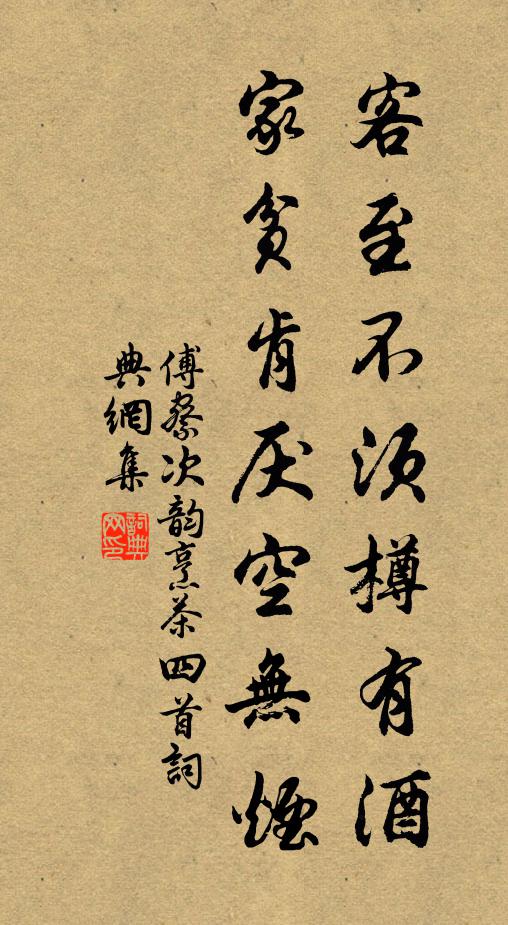 客至不須樽有酒
家貧肯厌空無煙
傅察次韵烹茶四首詞
典網集
詞典
网印